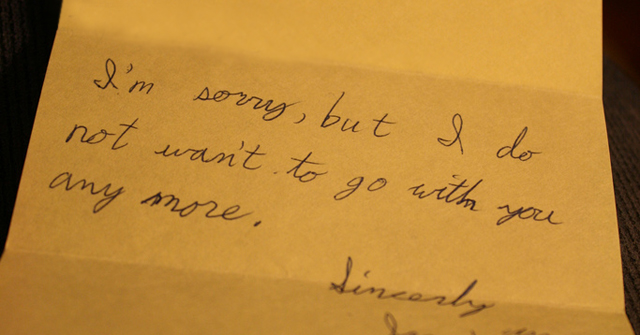 I'm sorry, but I do
not wan't to go with you
any more.
Sincerly